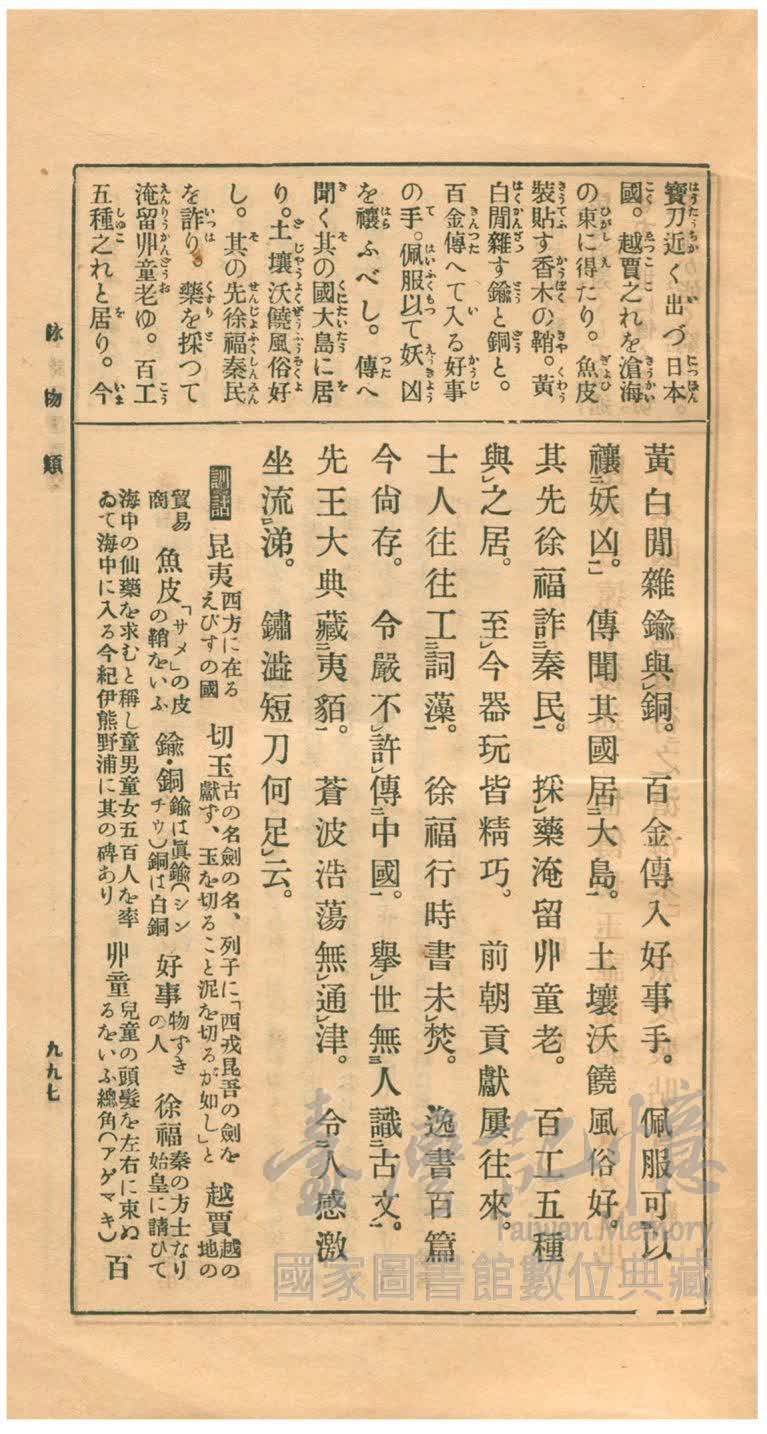 寶刀近く出づ日本
國。越賈之れを滄海
の東に得たり。魚皮
裝貼す香木の鞘。黄
白閒雜す鍮と銅と。
百金傳へて入る好事
の手。佩服以て妖凶
を禳ふべし。傳へ
聞く其の國大島に居
り。土壤沃饒風俗好
し。其の先徐福秦民
を詐り。藥を採つて
淹留丱童老ゆ。百工
五種之れと居り。今
黃白閒雜鍮與㆑銅。百金傳入好事手。佩服可㆔以
禳㆓妖凶㆒。傳聞其國居㆓大島㆒。土壤沃饒風俗好。
其先徐福詐㆓秦民㆒。採㆑藥淹留丱童老。百工五種
與㆑之居。至㆑今器玩皆精巧。前朝貢獻屢往來。
士人往往工㆓詞藻㆒。徐福行時書未㆑焚。逸書百篇
今尙存。令嚴不㆑許㆑傳㆓中國㆒。擧㆑世無㆔人識㆓古文㆒。
先王大典藏㆓夷貊㆒。蒼波浩蕩無㆑通㆑津。令㆓人感激
坐流㆒㆑涕。鏽澁短刀何足㆑云。
訓詁 昆夷 西方に在るえびすの國 切玉 古の名劍の名、列子に「西戎昆吾の劍を獻ず、玉を切ること泥を切るが如し」と 越賈 越の地の
商貿易 魚皮 「サメ」の皮の鞘をいふ 鍮・銅 鍮は眞鍮(シンチウ)銅は白銅 好事 物ずきの人 徐福 秦の方士なり始皇に請ひて
海中の仙藥を求むと稱し童男童女五百人を率ゐて海中に入る今紀伊熊野浦に其の碑あり 丱童 兒童の頭髮を左右に束ぬるをいふ總角(アゲマキ) 百
詠物類
九九七
臺灣記憶
Taiwan Memory
國家圖書館數位典藏